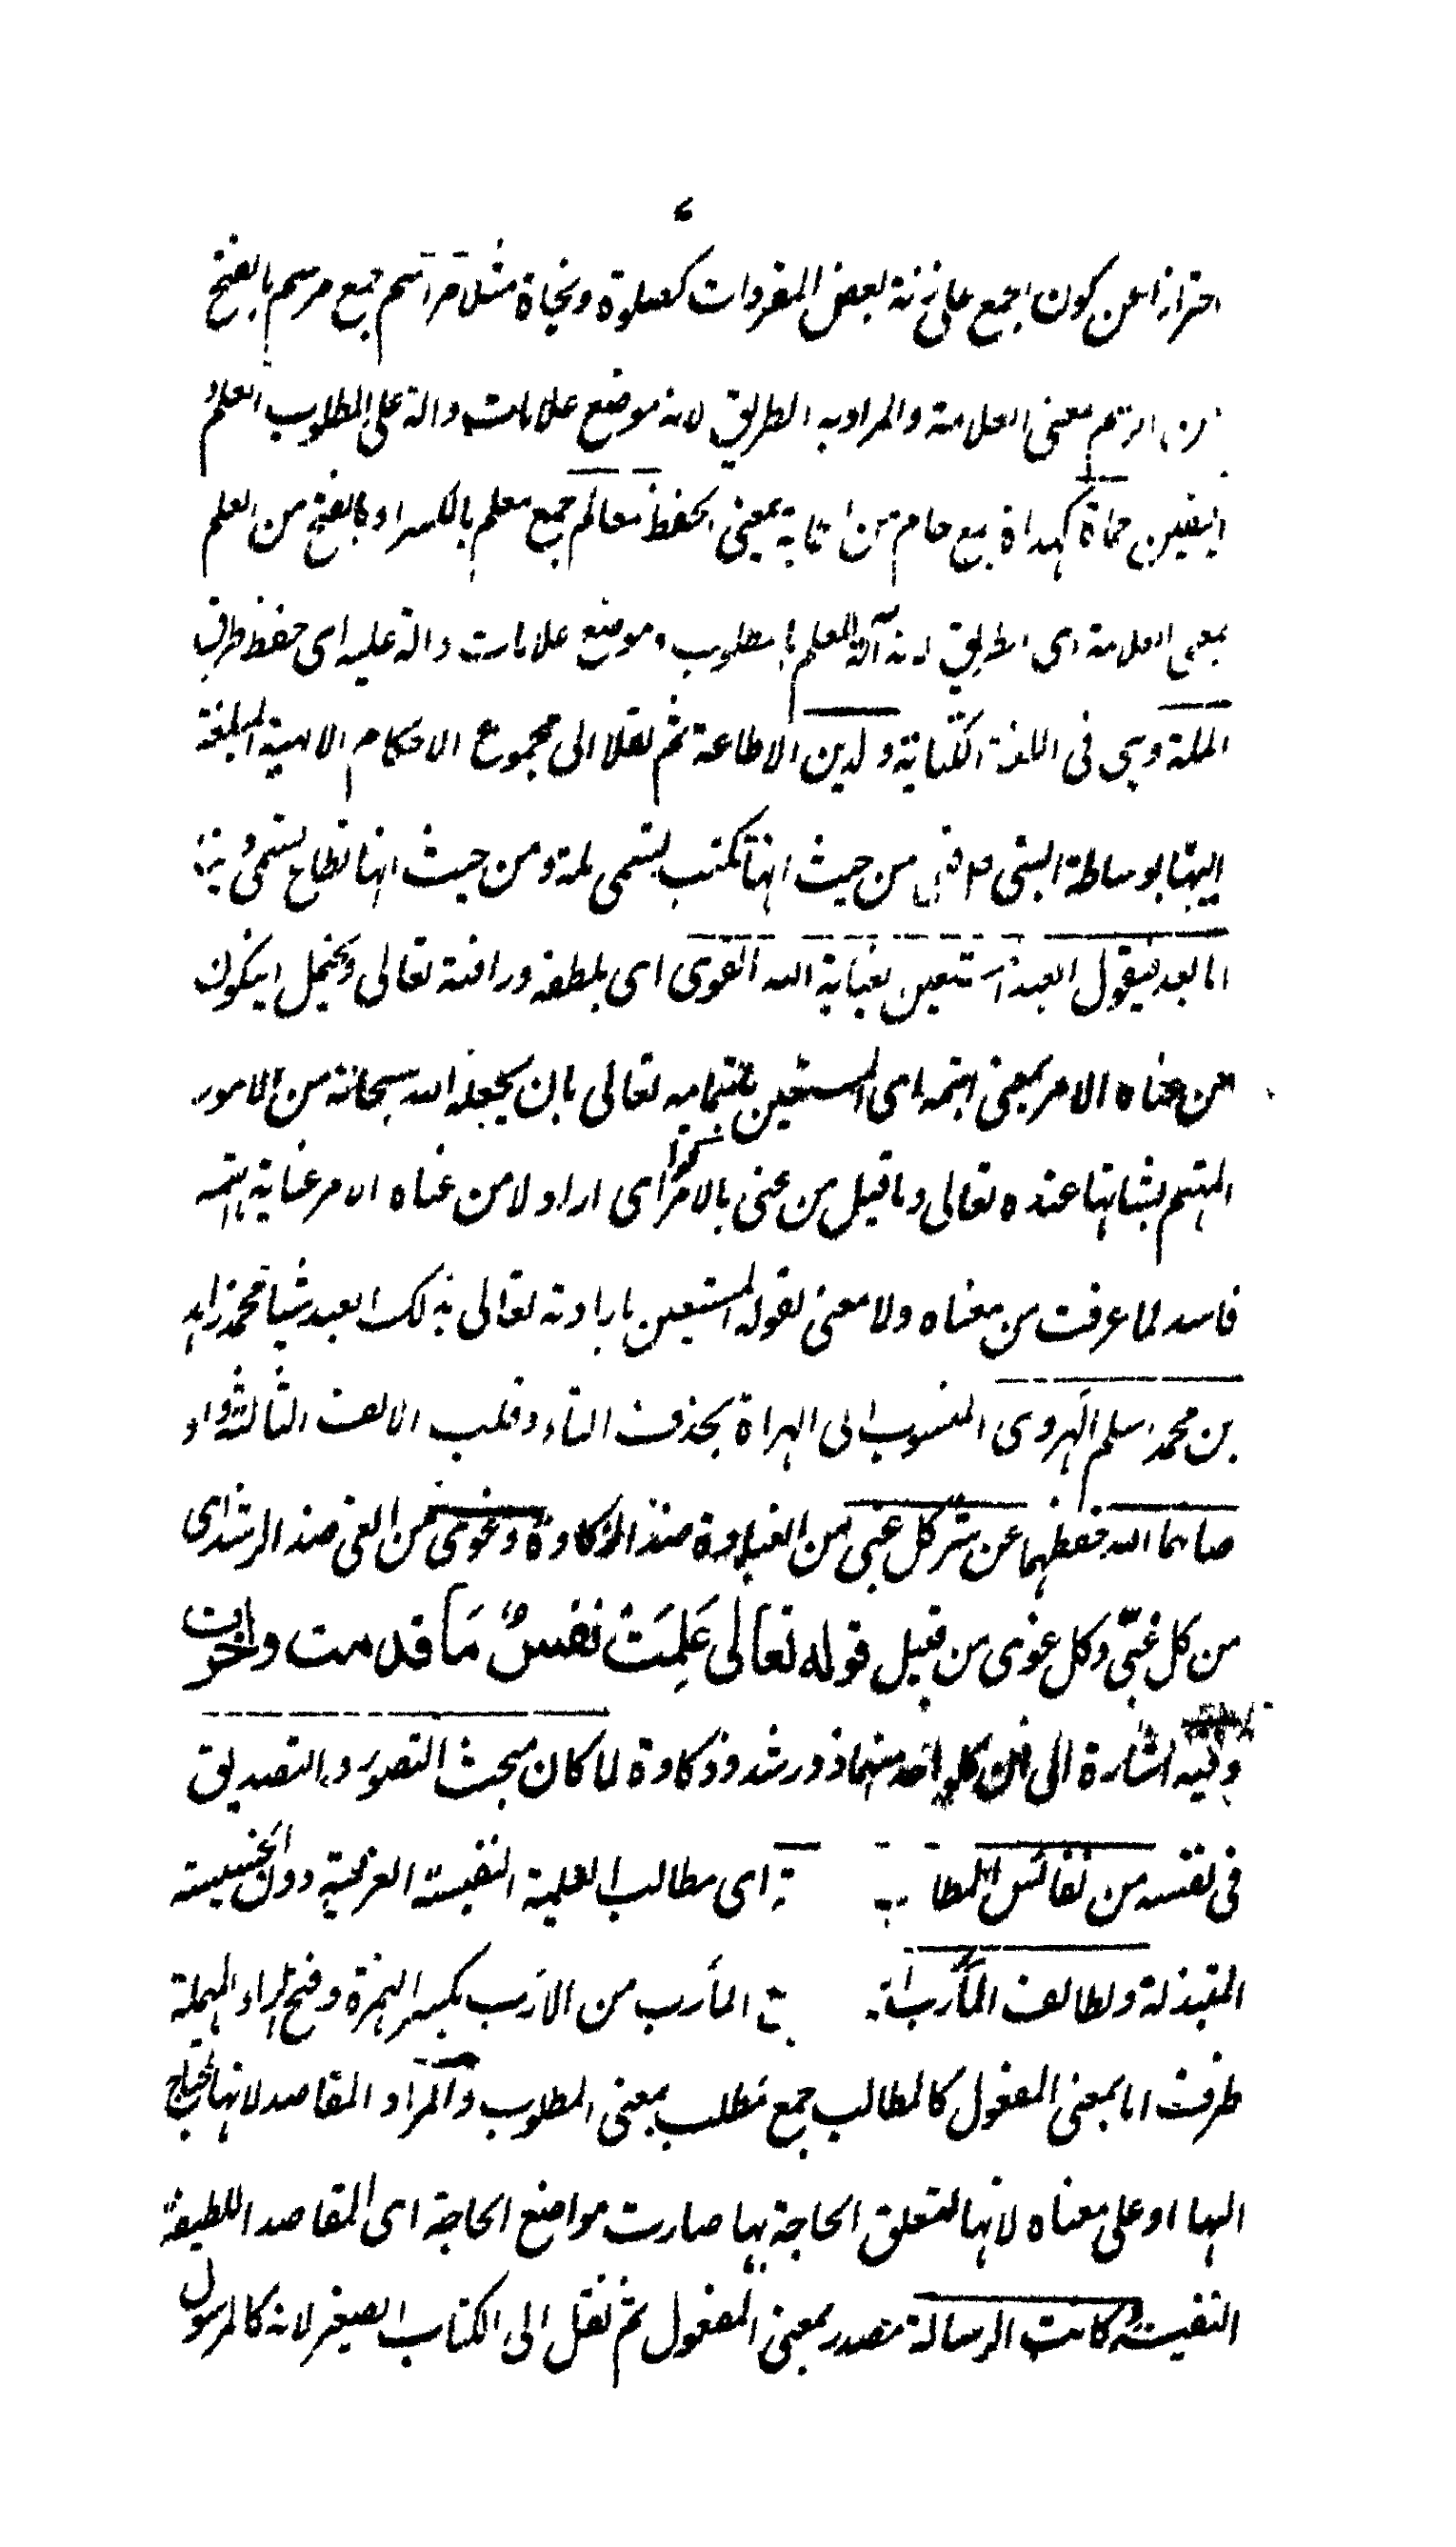 احترازا عن كون الجمع على زنة بعض المفردات كصلوة ونجاة مثلا مراسم جمع مرسم بالفتح
من الرسم بمعنى العلامة والمراد به الطريق لانه موضع علامات دالة على المطلوب العلم و
اليقين حماة كهداة جمع حام من الحماية بمعنى الحفظ معالم جمع معلم بالكسر او بالفتح من العلم
بمعنى العلامة اى الطريق لانه آلة للعلم بالمطلوب وموضع علامات دالة عليه اى حفظ طرق
الملة وهى فى اللغة الكتابة والدين الاطاعة ثم نقلا الى مجموع الاحكام الالهية المبلغة
الينا بوساطة النبى من حيث انها تكتب يسمى ملة ومن حيث انها تطاع يسمى دينا
اما بعد فيقول العبد المستعين بعناية الله القوى اى بلطفه ورافته تعالى ويحتمل ان يكون
من عناه الامر بمعنى اهتمه اى المستعين باهتمامه تعالى بان يجعله الله سبحانه من الامور
المهتم بشانها عنده تعالى وما قيل من عنى بالامر كذا اى اراد لا من عناه الامر عناية اهتمه
فاسد لما عرفت من معناه ولا معنى لقوله المستعين بارادته تعالى ذلك العبد شيئا محمد زاهد
بن محمد اسلم الهروى المنسوب الى الهراة بحذف التاء وقلب الالف الثالثة واو
صانهما الله حفظهما عن شر كل غبى من الغباوة ضد الذكاوة وغوى من الغى ضد الرشد اى
من كل غبى وكل غوى من قبيل قوله تعالى عَلِمَتْ نفسٌ مَا قدمت واخرت
وفيه اشارة الى ان كل واحد منهما ذو رشد وذكاوة لما كان مبحث التصور والتصديق
فى نفسه من نفائس المطالب اى مطالب العلمية النفيسة العزيزة دون الخسيسة
المتبذلة ولطائف المآرب جمع المأرب من الارب بكسر الهمزة وفتح الراء المهملة
ظرف اما بمعنى المفعول كالمطالب جمع مطلب بمعنى المطلوب والمراد المقاصد لانها تحتاج
اليها او على معناه لانها لتعلق الحاجة بها صارت مواضع الحاجة اى المقاصد اللطيفة
النفيسة وكانت الرسالة مصدر بمعنى المفعول ثم نقل الى الكتاب الصغير لانه كالمرسول